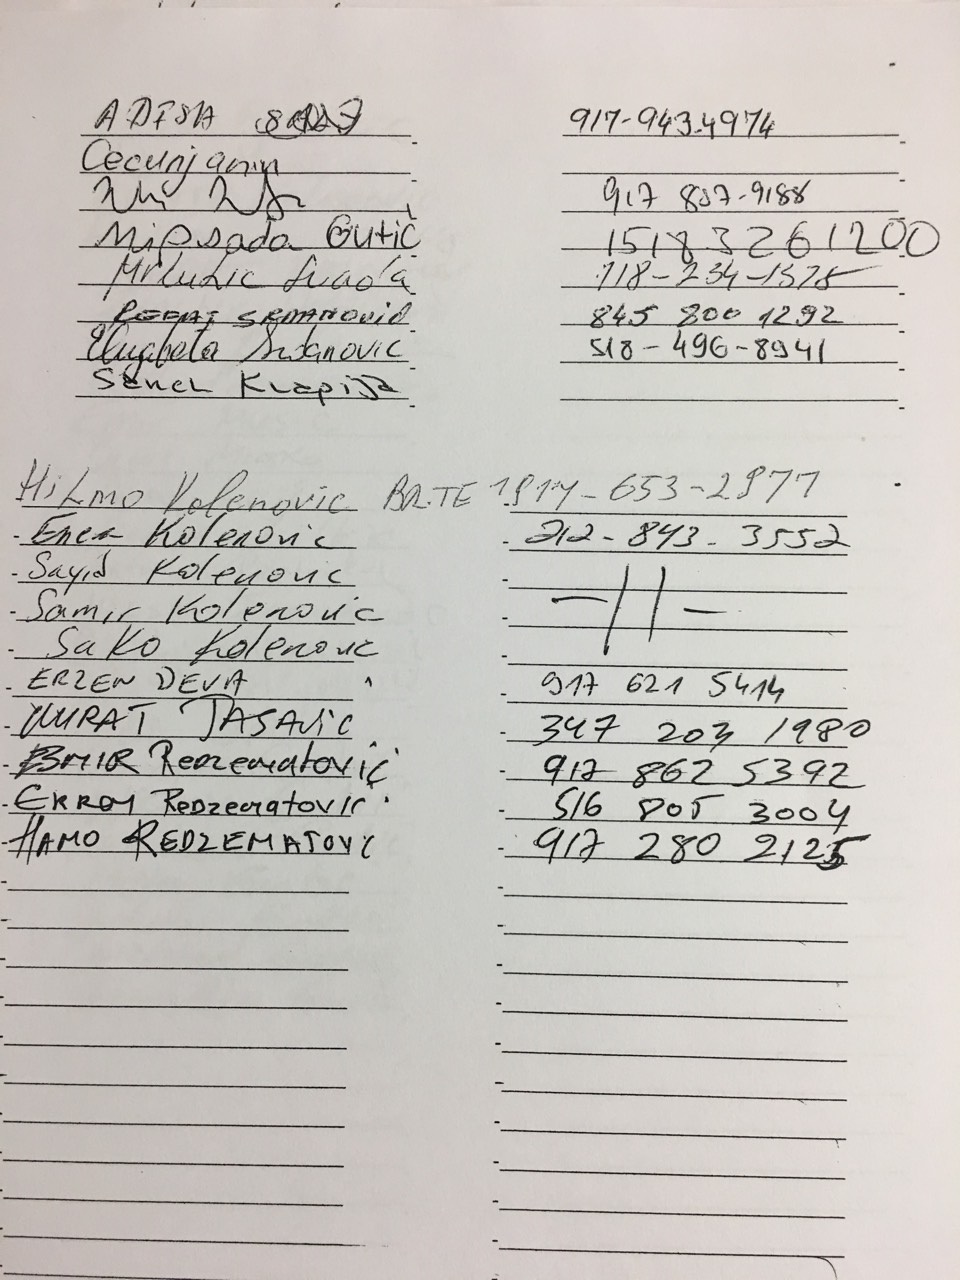 ADISA 917-943-4974
Cecunjanin
917 837-9188
Mirsada Gutić 15183261200
Suada 718-234-1575
REFAT SRDANOVIC 845 800 1292
Elizabeta Srdanovic 518-496-8941
Senel Klapija
Hilmo Kolenovic BR.TE 1917-653-2977
Ener Kolenovic 212-843-3552
Sayid Kolenovic
Samir Kolenovic -||-
Sako Kolenovic
ERZEN DEVA 917 621 5414
MURAT JASAVIC 347 203 1980
EMIR Redzematović 917 862 5392
EKREM Redzematovic 516 805 3004
HAMO REDZEMATOVIC 917 280 2125